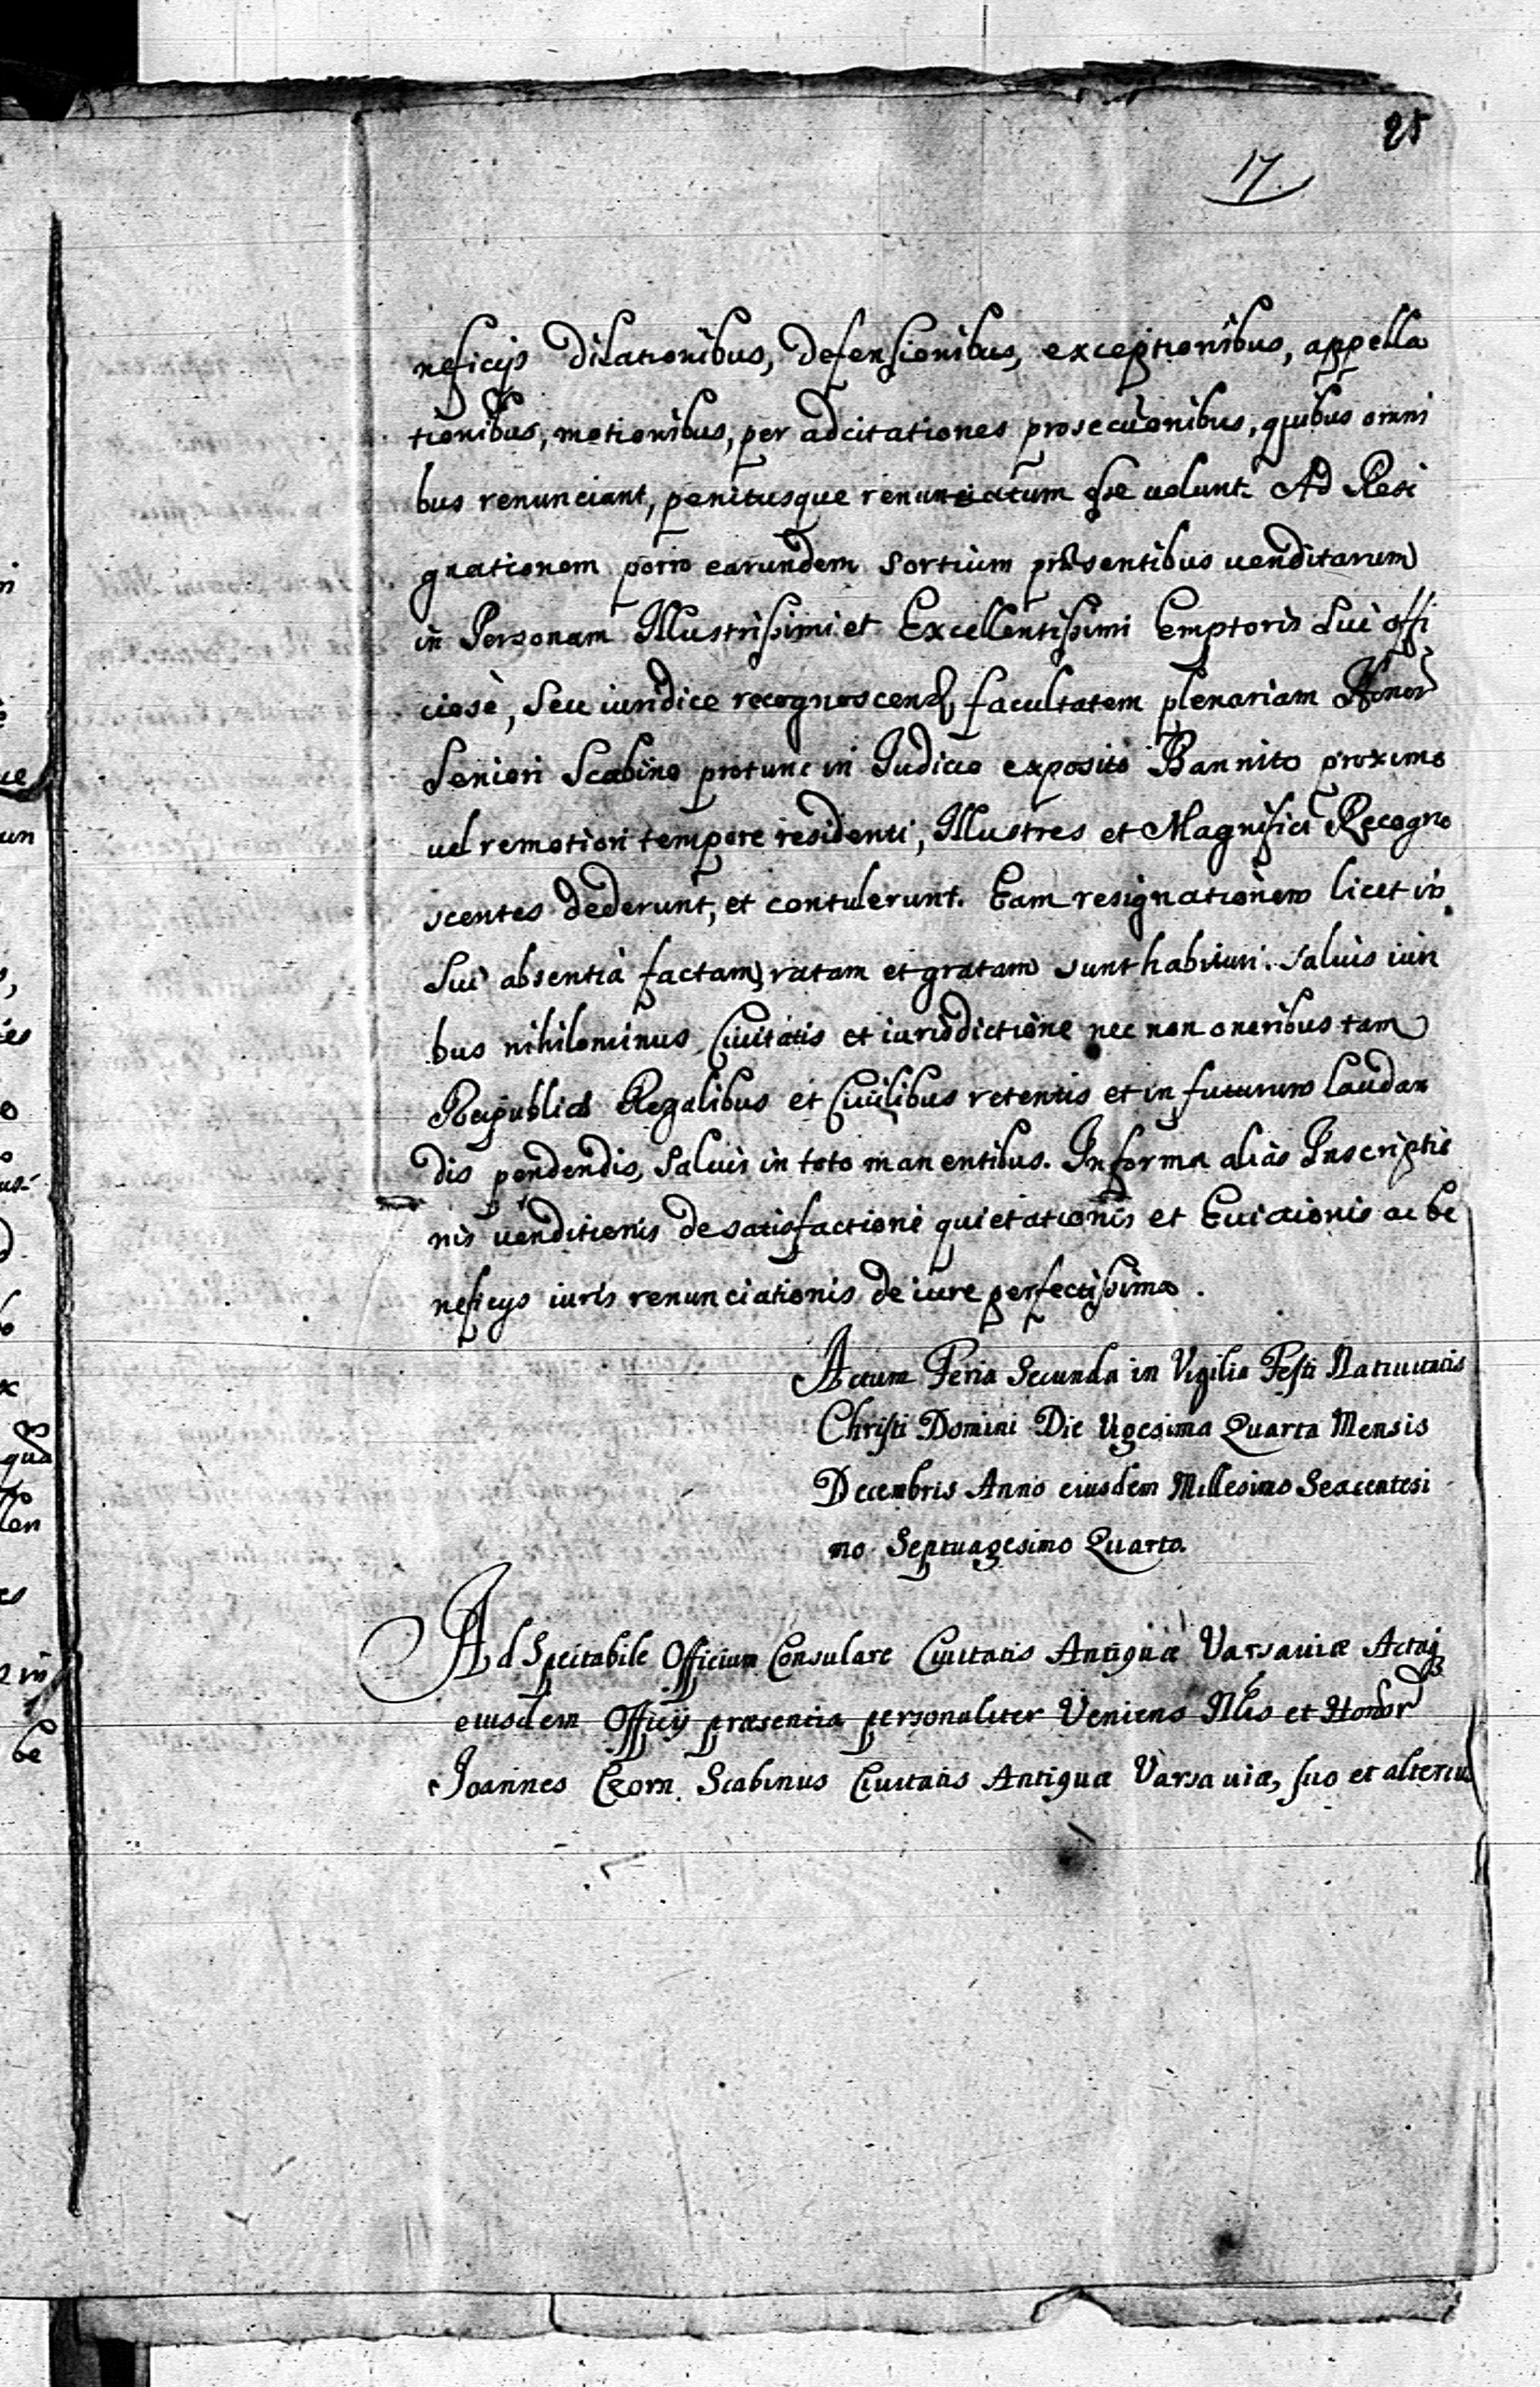 25
17.
neficijs dilationibus, defensionibus, exceptionibus, appella
tionibus, motionibus, per adcitationes prosecuõnibus, quibus omni
bus renunciant, penitusque renunciatum esse uolunt. Ad Resi
gnationem porro earundem sortium præsentibus uenditarum
in Personam Illustrissimi et Excellentissimi Emptoris sui offi
ciosè, seu iuridice recognoscend, facultatem plenariam Honor
Seniori Scabino protunc in Iudicio exposito Bannito proximo
uel remotiori tempore residenti, Illustres et Magnifici Recogno
scentes dederunt, et contulerunt. Eam resignationem licet in
sui absentia factam, ratam et gratam sunt habituri. saluis iuri
bus nihilominus Ciuitatis et iurisdictione nec non oneribus tam
Reipublicæ Regalibus et Ciuilibus retentis et in futurum laudan
dis pendendis, saluis in toto manentibus. In forma aliàs Inscriptio
nis uenditionis de satisfactione quietationis et Euictionis ac be
neficijs iuris renunciationis de iure perfectissima.
Actum Feria Secunda in Vigilia Festi Natiuitatis
Christi Domini Die Vigesima Quarta Mensis
Decembris Anno eiusdem Millesimo Sexcentesi
mo Septuagesimo Quarto.
Ad Spectabile Officium Consulare Ciuitatis Antiquæ Varsauiæ Actaq
eiusdem Officij præsentia personaliter Veniens Nlis et Honor
Joannes Czorn Scabinus Ciuitatis Antiquæ Varsauiæ, suo et alterius